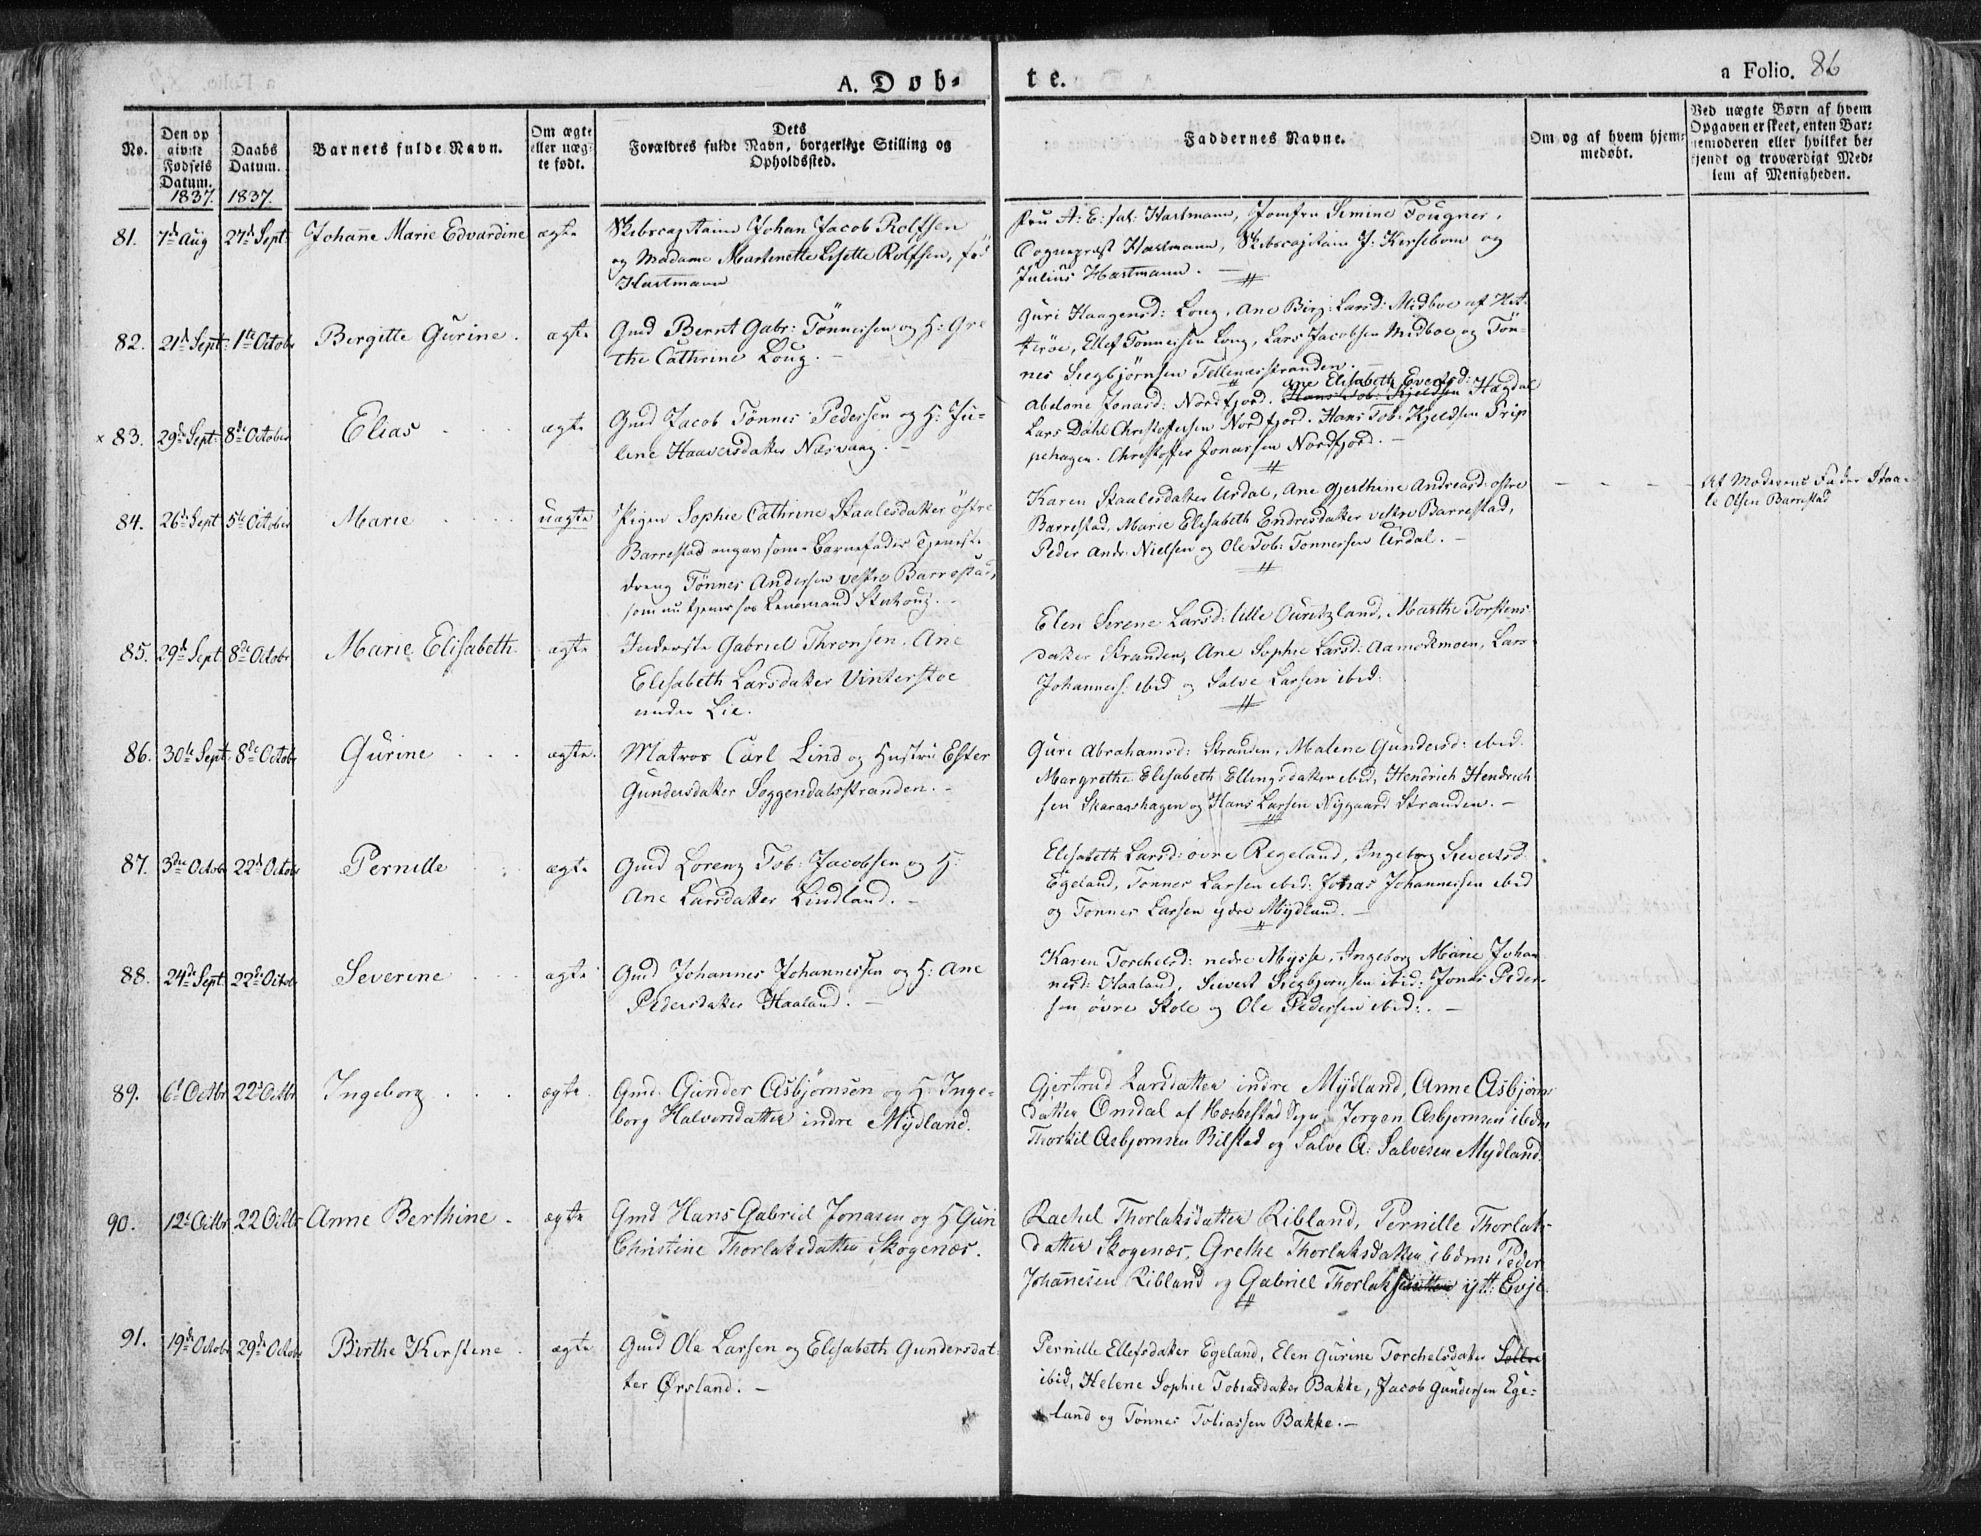 A. Døb-
te.
a Folio. 86
No.
Den op
givne
Fødsels
Datum.
1837.
Daabs
Datum.
1837.
Barnets fulde Navn.
Om ægte
eller uæg-
te født.
Dets
Forældres fulde Navn, borgerlige Stilling og
Opholdssted.
Faddernes Navne.
Om og af hvem hjem-
medøbt.
Ved uægte Børn af hvem
Opgaven er skeet, enten Bar-
nemoderen eller hvilket be-
kjendt og troværdigt Med-
lem af Menigheden.
81. 7d Aug 27d Sept: Johane Marie Edvardine ægte
Skibscapitain Johan Jacob Rolfsen
og Madame Martinette Lisette Rolfsen, fød
Hartmann
Fru A: E: sal: Hartmann, Jomfru Semine Tougner,
Sognepræst Hartmann, Skibscapitain J. Kerselbom og
Julius Hartmann. —
82. 21d Sept: 1te Octobr Bergitte Gurine. ægte
Gmd Bernt Gabr: Tönnessen og H: Gre
the Cathrine Loug. —
Guri Haagensd: Loug, Ane Birg: Larsd: Midboe af Hit-
terøe, Ellef Tonnessen Loug, Lars Jacobsen Midboe og Tön-
nes Siegbjörnsen Tellenæsstranden. —
× 83. 29de Sept: 8de October Elias ægte
Gmd Jacob Tønnes Pedersen og H: Ju-
liene Haaversdatter Næsvaag. —
ane Elisabeth Evertsd:
Abelone Jonasd: Nordfjord. Hans Tob: Kjeldsen Hægdal
Lars Dahl Christoffersen Nordfjord. Hans Tob: Kjeldsen Trip
pehagen. Christoffer Jonassen Nordfjord. —
84. 26d Sept 5te October Marie uægte
Pigen Sophie Cathrine Staalesdatter östre
Barrestad angav som Barnefader Tjeneste
dreng Tönnes Andersen vestre Barrestad,
som nu tjener hos Lensmand Stuhoug. —
Karen Staalesdatter Urdal, Ane Gjerthine Andreasd: ostre
Barrestad, Marie Elisabeth Endresdatter vestre Barrestad,
Peder Andr: Nielsen og Ole Tob: Tonnessen Urdal. —
Af Moderens Fader Staa-
le Olsen Barrestad
85. 29d Sept 8de Octobr Marie Elisabeth ægte
Inderste Gabriel Thronsen. Ane
Elisabeth Larsdatter Vinterstoe
under Lie.
Elen Serene Larsd: lille Ouretzland, Marthe Torstens
datter Stranden, Ane Sophie Larsd: Aamodtmoen, Lars
Johannes: ibid og Salve Larsen ibid:
86. 30te Sept: 8de Octobr Gurine ægte.
Matros Carl Lind og Hustru Ester
Gundersdatter Soggendalsstranden. —
Guri Abrahamsd: Stranden, Malene Gundersd: ibid.
Margrethe Elisabeth Ellingsdatter ibid, Hendrich Hendrich
sen Skaraashagen og Hans Larsen Nygaard Stranden. —
87. 3die Octobr 22d Octobr Pernille ægte
Gmd Lorenz Tob: Jacobsen og H:
Ane Larsdatter Lindland. —
Elisabeth Larsd: övre Regeland, Ingeborg Sievertsd.
Egeland, Tonnes Larsen ibid: Jonas Johannessen ibid
og Tonnes Larsen ydre Mydland. —
88. 24de Sept: 22de Octobr Severine ægte
Gmd Johannes Johannessen og H: Ane
Pedersdatter Haaland. —
Karen Torchelsd: nedre Mysse, Ingeborg Marie Johan
nesd: Haaland, Sievert Siegbjornsen ibid: Jonas Peder-
sen övre Skole og Ole Pedersen ibid: —
89. 6t Octbr 22d Octbr Ingeborg ægte.
Gmd. Gunder Asbjörnsen og H: Inge-
borg Halvordatter indre Mydland.
Gjertrud Larsdatter indre Mydland, Anne Asbjørns
datter Omdal af Hæskestad Sogn, Jørgen Asbjornsen ibdm
Thorkil Asbjornsen Bilstad og Salve A: Salvesen Mydland.
90. 12t Octbr 22 Octbr Anne Berthine. ægte
Gmd Hans Gabriel Jonasen og H Guri
Christine Thorlaksdatter Skogenæs.
Rachel Thorlaksdatter Ribland, Pernille Thorlaks-
datter Skogenæs, Grethe Thorlaksdatter ibdm, Peder
Johanesen Ribland og Gabriel Thorlaksdatter ytt: Evje.
91. 19de Octobr 29de Octobr Birthe Kirstene ægte
Gmd Ole Larsen og Elisabeth Gundersdat-
ter Ørsland. —
Pernille Ellefsdatter Egeland, Elen Gurine Torchelsdatter
ibid, Helene Sophie Tobiasdatter Bakke, Jacob Gundersen Ege-
land og Tönnes Tobiassen Bakke. —